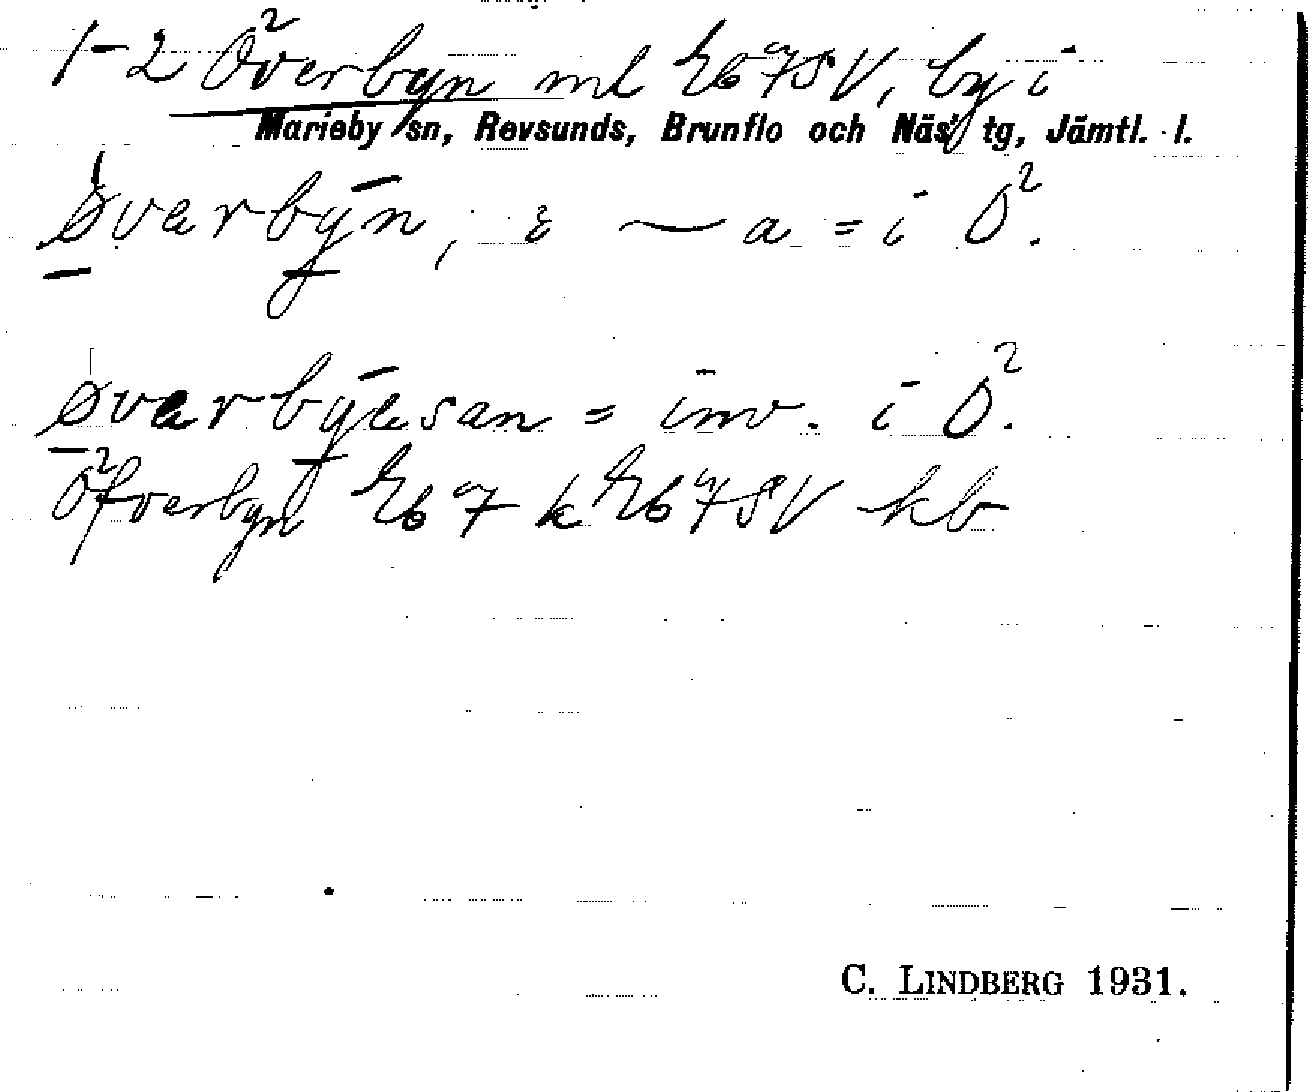 1-2 Överbyn ml Eb 7SV, by i
Marieby sn, Revsunds, Brunflo och Näs tg, Jämtl. l.
øvarbȳn, i ~a = i Ö.
øvarbȳesan = inv. i Ö.
Öfverbyn Eb 7 k Eb 7SV kb
C. LINDBERG 1931.